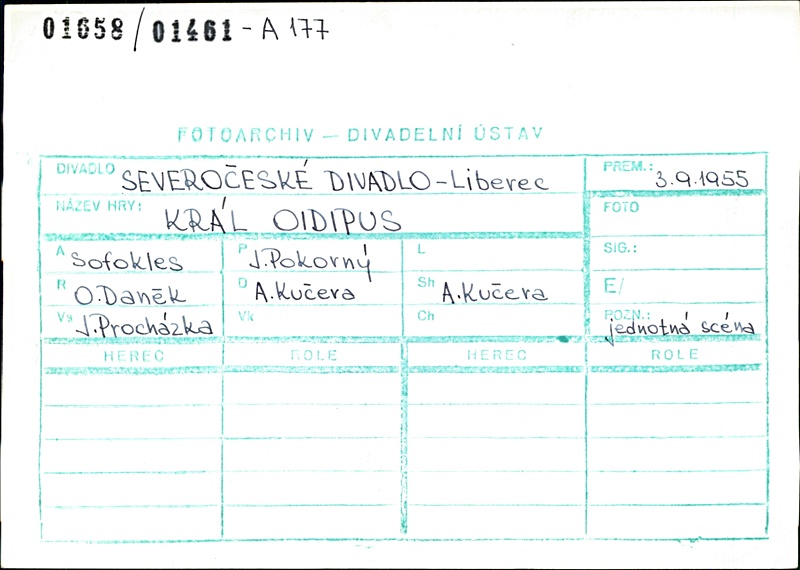 01658/01461-A 177
FOTOARCHIV — DIVADELNÍ ÚSTAV
DIVADLO SEVEROČESKÉ DIVADLO-Liberec PREM.: 3.9.1955
NÁZEV HRY: KRÁL OIDIPUS FOTO
A Sofokles P J.Pokorný L SIG.:
R O.Daněk D A.Kučera Sh A.Kučera E/
Vs J.Procházka Vk Ch POZN.: jednotná scéna
HEREC ROLE HEREC ROLE